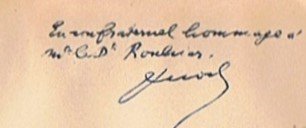 En confraternel hommage à
Mr le Dr Rouhier.